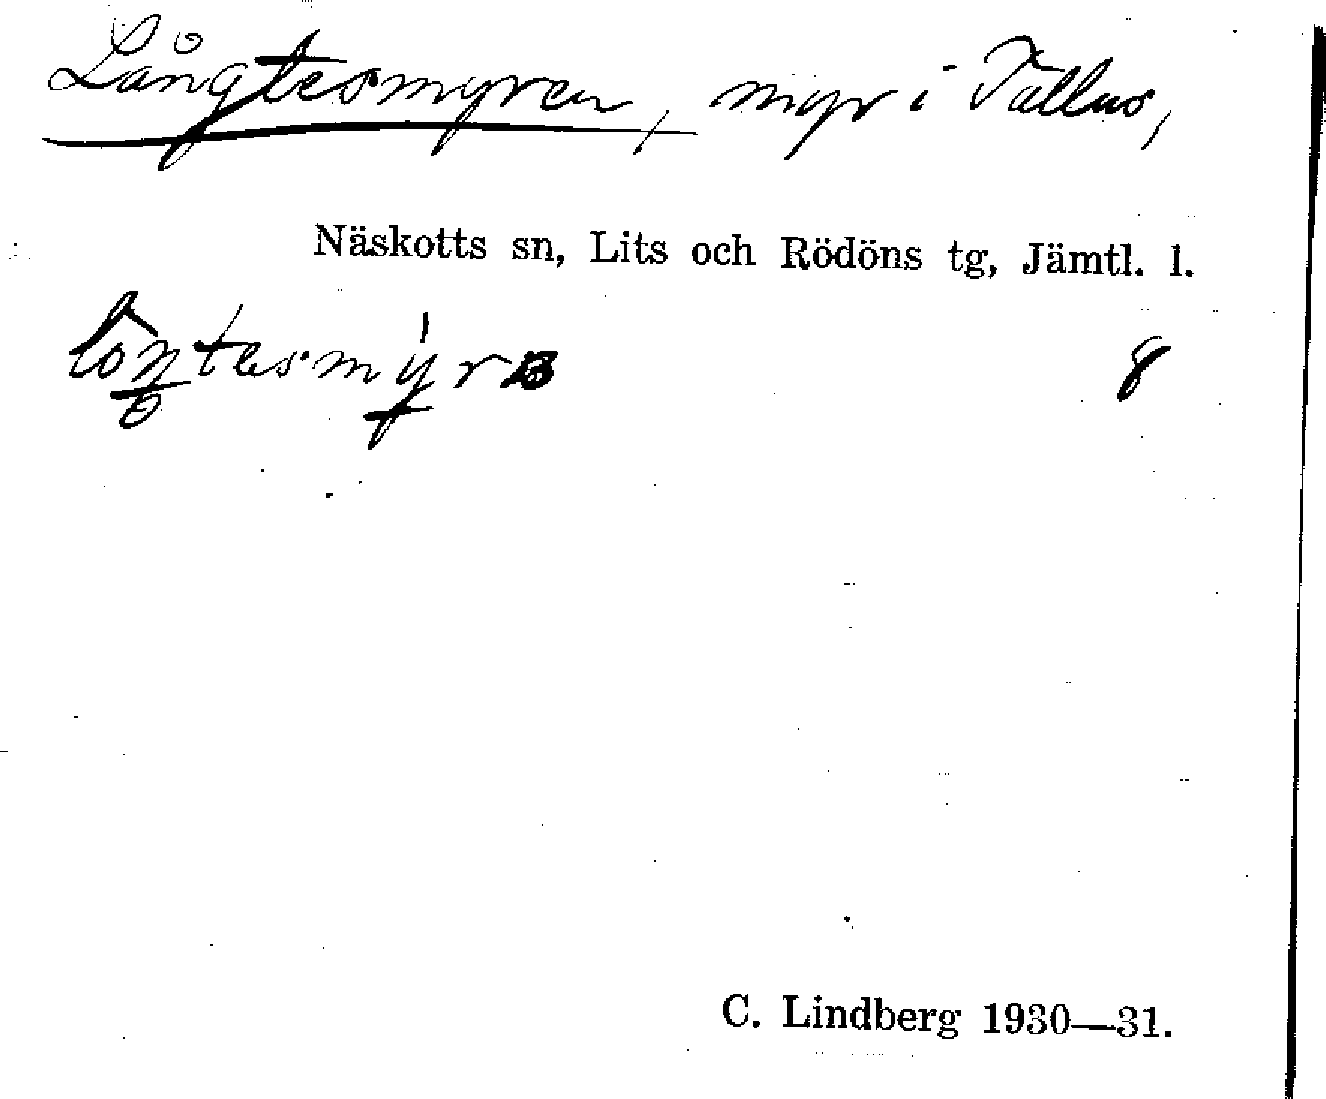 Långtesmyren, myr i Tullus,
Näskotts sn, Lits och Rödöns tg, Jämtl. l.
8
C. Lindberg 1930—31.